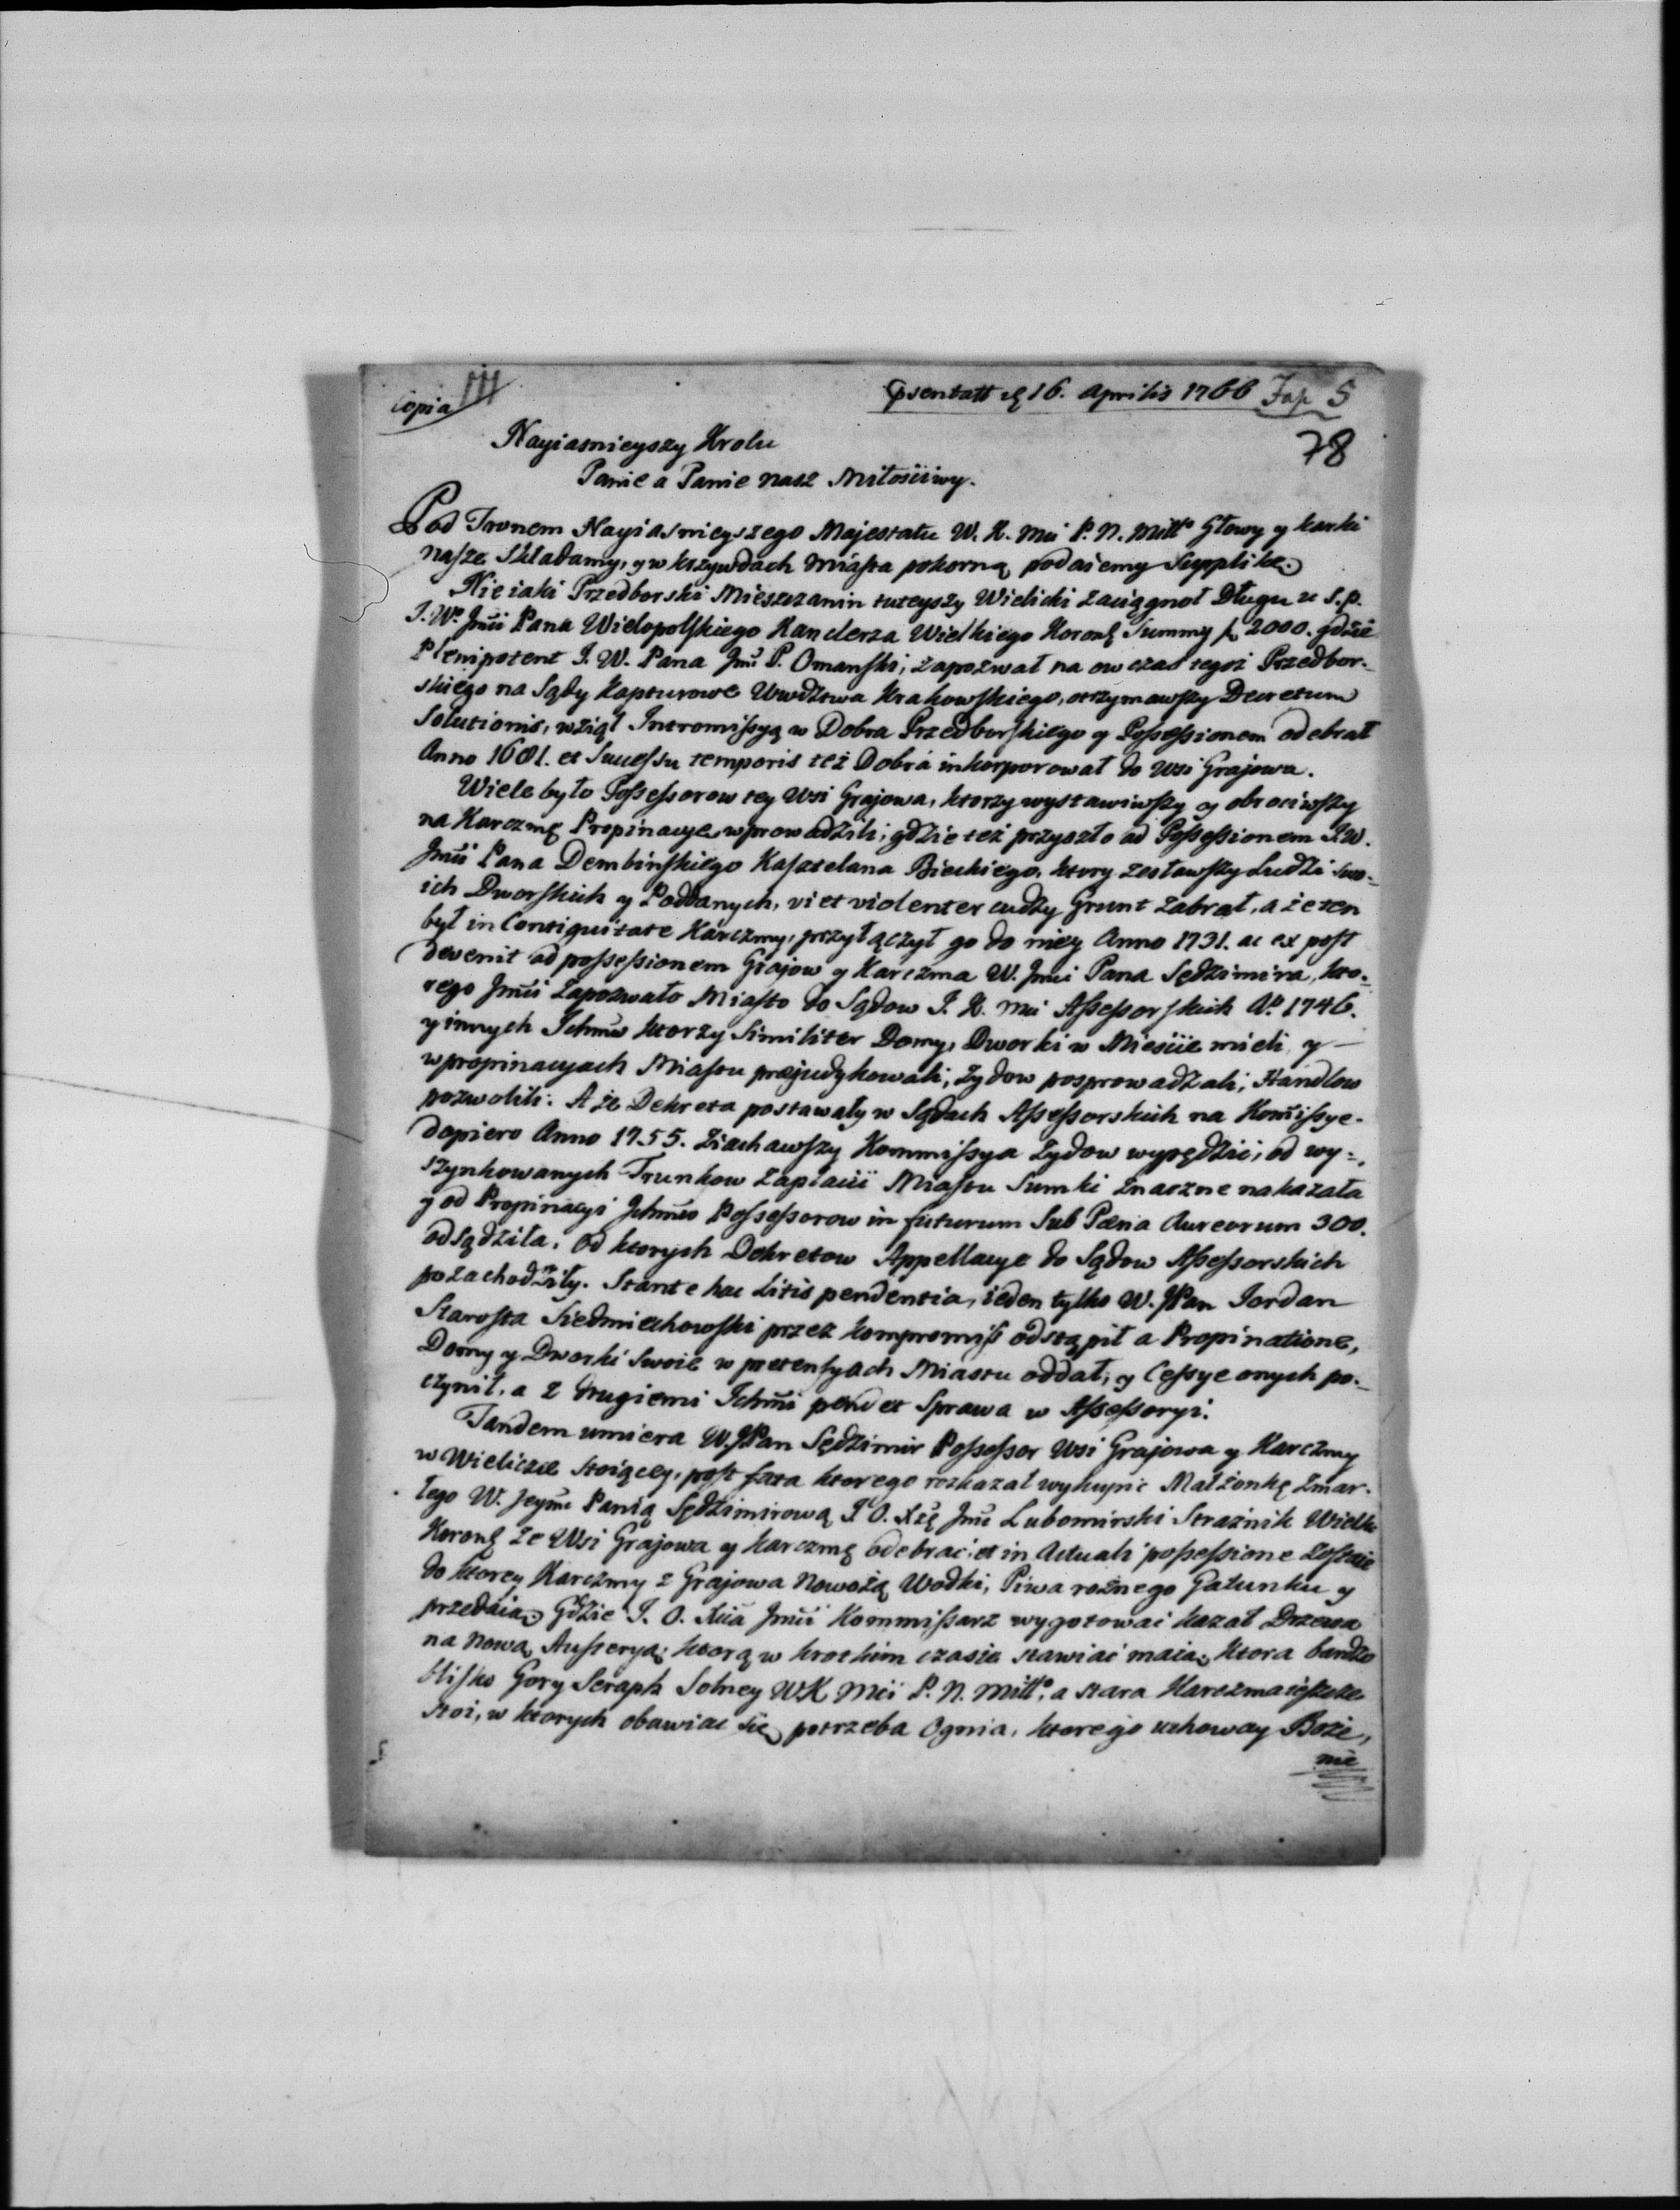 Copia III
psentatt ꝛę 16. Aprilis 1766 Fap 5
78
Nayiasnieyszy Krolu
Panie a Panie nasz Miłosciwy.
Pod Tronem Nayiasnieyszego Majestatu W. K. Mci P. N. Miłło Głowy y karki
nasze składamy, y w krzywdach Miasta pokorną podaiemy Supplikę.
Nieiaki Przedborski Mieszczanin tuteyszy Wielicki zaciągnoł Długu u S. p.
J. Wo. Jmci Pana Wielopolskiego Kanclerza Wielkiego Koronę Summy f 2000. gdzie
Plenipotent J. W. Pana Jmć P. Omanski, zapozwał na ow czas tegoż Przedbor-
skiego na Sądy Kapturowe Wwdztwa Krakowskiego, otrzymawszy Decretum
Solutionis, wziął Intromissyą w Dobra Przedborskiego y Possessionem odebrał
Anno 1681. et Successu temporis też Dobra inkorporował do Wsi Grajowa.
Wiele było Possessorow tey Wsi Grajowa, ktorzy wystawiwszy y obrociwszy
na Karczmę Propinacye wprowadzili; gdzie też przyszło ad Possessionem J.W.
Jmci Pana Dembinskiego Kasztelana Bieckiego, ktory zesławszy Ludzi swo-
ich Dworskich y Poddanych, vi et violenter cudzy Grunt zabrał, a że ten
był in Contiguitate Karczmy, przyłączył go do niey Anno 1731. ac ex post
devenit ad possessionem Grajow y Karczma W. Jmci Pana Sędzimira, kto-
rego Jmci zapozwało Miasto do Sądow J. K. Mci Assessorskich Ao. 1746.
y innych Ichmw ktorzy similiter Domy, Dworki w Miescie mieli y
w propinacyach Miastu præjudykowali, Zydow posprowadzali, Handlow
pozwolili. A że Dekreta postawały w Sądach Assessorskich na Kommissye.
dopiero Anno 1755. ziachawszy Kommissya Zydow wypędzić, od wy-
szynkowanych Trunkow zapłacić Miastu Sumki znaczne nakazała
y od Propinacyi Ichmw Possessorow in futurum Sub Pæna Aureorum 300.
odsądziła, od ktorych Dekretow Appellacye do Sądow Assessorskich
pozachodziły. Stante hac Litis pendentia, ieden tylko W. JPan Jordan
Starosta Siedmiechowski przez kompromiss odstąpił a Propinatione,
Domy y Dworki swoie w pretensyach Miastu oddał, y Cessye onych po-
czynił, a z drugiemi Ichmci pendet Sprawa w Assessoryi.
Tandem umiera W. JPan Sędzimir Possessor Wsi Grajowa y Karczmy
w Wieliczce stoiącey, post fata ktorego rozkazał wykupić Małżonkę zmar-
łego W. Jeymć Panią Sędzimirową J. O. Xżę Jmć Lubomirski Straznik Wielki
Koronę ze Wsi Grajowa y karczmę odebrać, et in Actuali possessione zostaie
do ktorey Karczmy z Grajowa nowożą Wodki, Piwa rożnego Gatunku y
przedaią. Gdzie J. O. Xcia Jmci Kommissarz wygotować kazał Drzewa
na nową Austeryą, ktorą w krotkim czasie stawiać maią, ktora bardzo
blisko Gory Seraph Solney WK Mci P. N. Miłło, a stara Karczma ieszcze
stoi, w ktorych obawiać się potrzeba Ognia, ktorego uchoway Boże,
nie